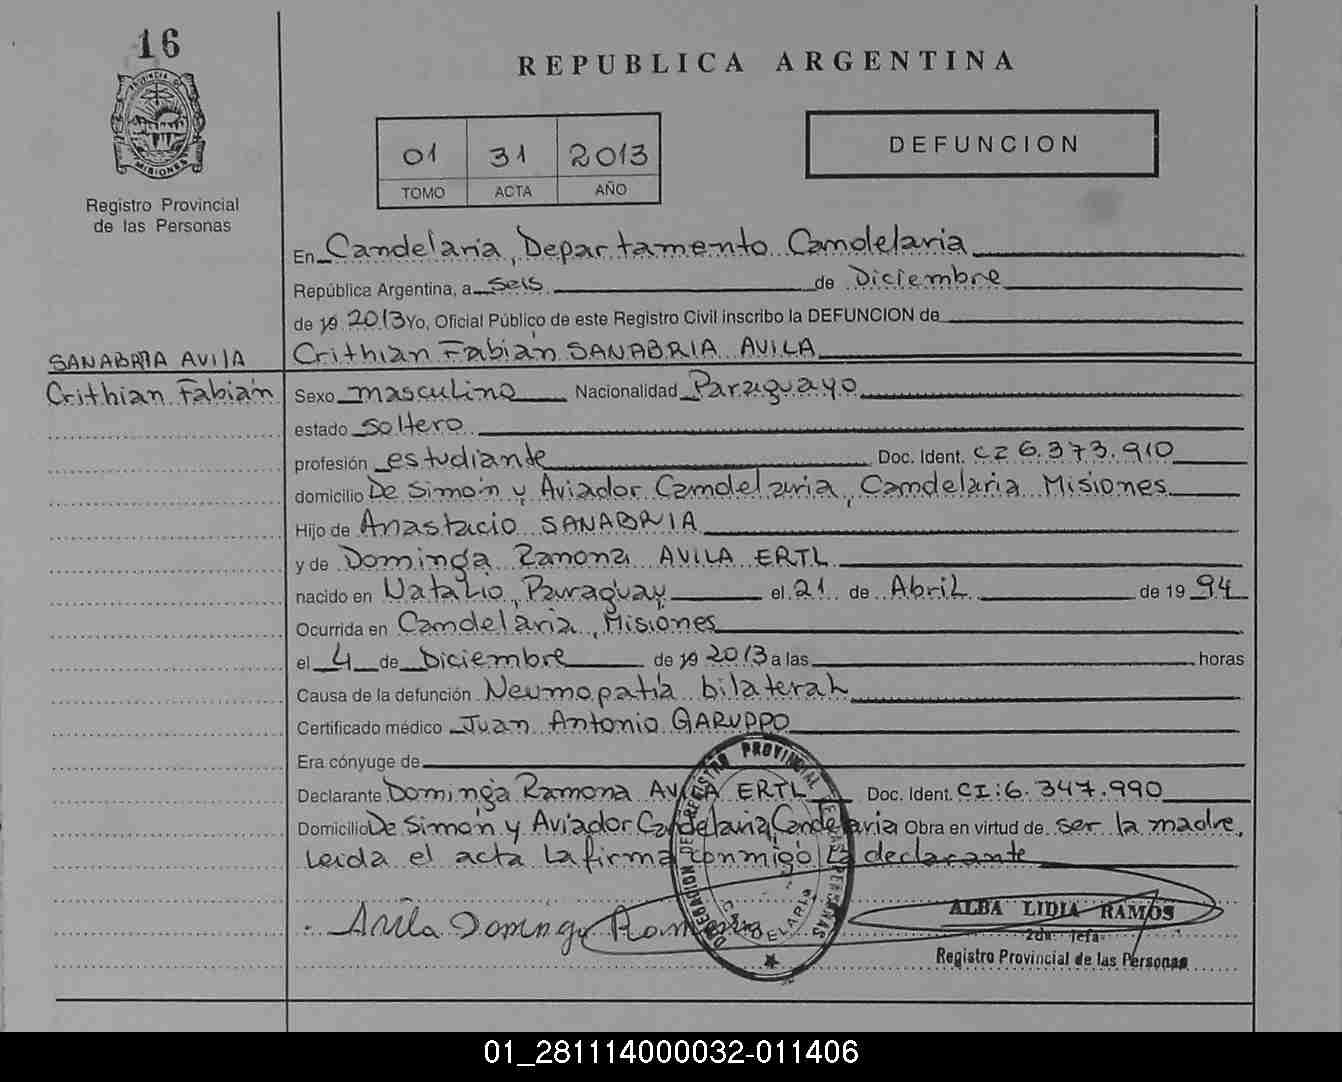 16
PROVINCIA DE
MISIONES
Registro Provincial
de las Personas
REPUBLICA ARGENTINA
01 31 2013
TOMO ACTA AÑO
DEFUNCION
En Candelaria, Departamento Candelaria
República Argentina, a seis de Diciembre
de 19 2013 Yo, Oficial Público de este Registro Civil inscribo la DEFUNCION de
Crithian Fabián SANABRIA AVILA
SANABRIA AVILA
Crithian Fabián
Sexo masculino Nacionalidad Paraguayo
estado soltero
profesión estudiante Doc. Ident. CI 6.373.910
domicilio De Simón y Aviador Candelaria, Candelaria Misiones
Hijo de Anastacio SANABRIA
y de Dominga Ramona AVILA ERTL
nacido en Natalio, Paraguay el 21 de Abril de 19 94
Ocurrida en Candelaria, Misiones
el 4 de Diciembre de 19 2013 a las horas
Causa de la defunción Neumopatía bilateral
Certificado médico Juan Antonio GARUPPO
Era cónyuge de
Declarante Dominga Ramona AVILA ERTL Doc. Ident. CI: 6.347.990
Domicilio De Simón y Aviador Candelaria, Candelaria Obra en virtud de ser la madre,
Leida el acta la firma conmigo la declarante
Avila Dominga Ramona
DELEGACION DE REGISTRO PROVINCIAL DE LAS PERSONAS
CANDELARIA
ALBA LIDIA RAMOS
2da. Jefa
Registro Provincial de las Personas
01_281114000032-011406